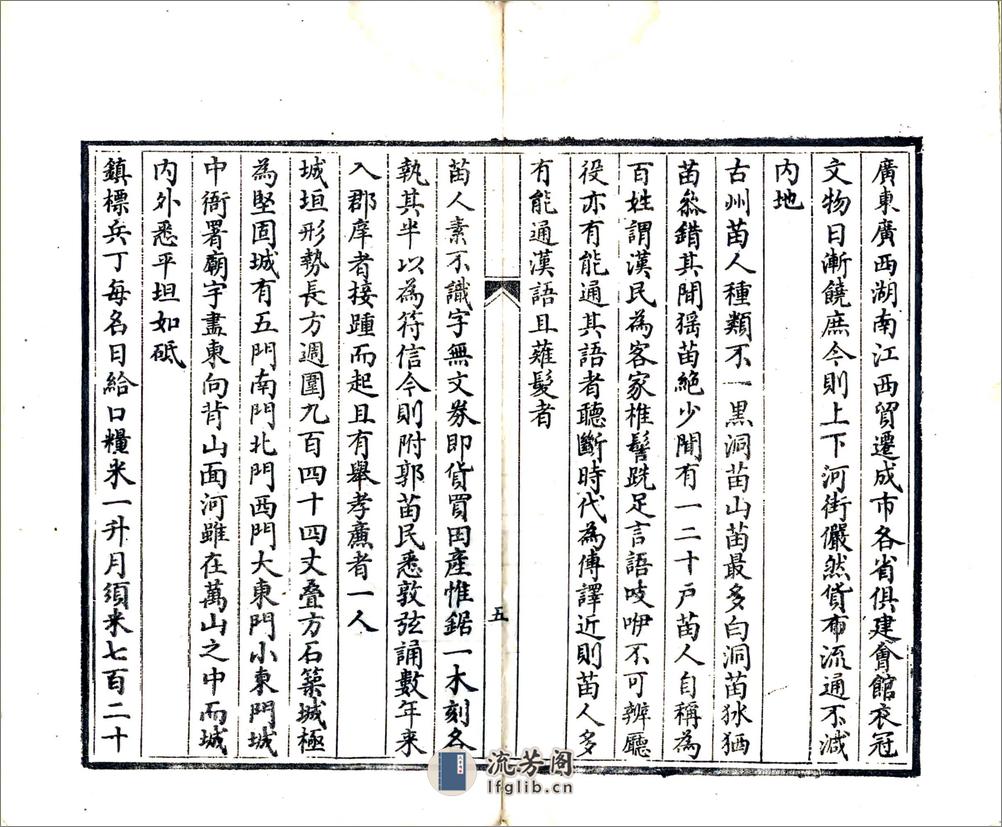 廣東廣西湖南江西貿遷成市各省俱建會館衣冠
文物日漸饒庶今則上下河街儼然貨布流通不減
內地
古州苗人種類不一黑洞苗山苗最多白洞苗狇狫
苗叅錯其閒猺苗絶少閒有一二十戶苗人自稱為
百姓謂漢民為客家椎髻跣足言語吱咿不可辨廳
役亦有能通其語者聽斷時代為傳譯近則苗人多
有能通漢語且薙髮者
五
苗人素不識字無文劵即貨買田產惟鋸一木刻各
執其半以為符信今則附郭苗民悉敦弦誦數年来
入郡庠者接踵而起且有舉孝廉者一人
城垣形勢長方週圍九百四十四丈叠方石築城極
為堅固城有五門南門北門西門大東門小東門城
中衙署廟宇盡東向背山面河雖在萬山之中而城
內外悉平坦如砥
鎮標兵丁每名日給口糧米一升月須米七百二十
流芳阁
lfglib.cn